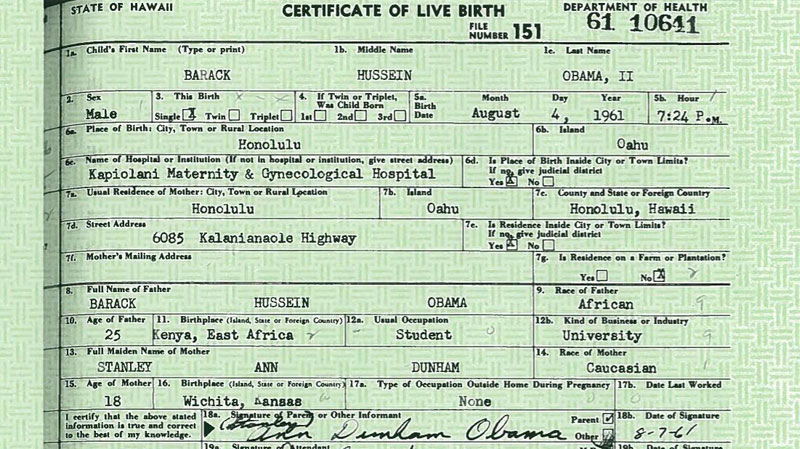 STATE OF HAWAII CERTIFICATE OF LIVE BIRTH DEPARTMENT OF HEALTH
FILE NUMBER 151 61 10641
1a. Child's First Name (Type or print) 1b. Middle Name 1c. Last Name
BARACK HUSSEIN OBAMA, II
2. Sex 3. This Birth 4. If Twin or Triplet, Was Child Born 5a. Birth Date Month Day Year 5b. Hour
Male Single X Twin Triplet 1st 2nd 3rd August 4, 1961 7:24 P.M.
6a. Place of Birth: City, Town or Rural Location 6b. Island
Honolulu Oahu
6c. Name of Hospital or Institution (If not in hospital or institution, give street address) 6d. Is Place of Birth Inside City or Town Limits?
If no, give judicial district
Kapiolani Maternity & Gynecological Hospital Yes X No
7a. Usual Residence of Mother: City, Town or Rural Location 7b. Island 7c. County and State or Foreign Country
Honolulu Oahu Honolulu, Hawaii
7d. Street Address 7e. Is Residence Inside City or Town Limits?
If no, give judicial district
6085 Kalanianaole Highway Yes X No
7f. Mother's Mailing Address 7g. Is Residence on a Farm or Plantation?
Yes No X
8. Full Name of Father 9. Race of Father
BARACK HUSSEIN OBAMA African 9
10. Age of Father 11. Birthplace (Island, State or Foreign Country) 12a. Usual Occupation 12b. Kind of Business or Industry
25 Kenya, East Africa Student University 9
13. Full Maiden Name of Mother 14. Race of Mother
STANLEY ANN DUNHAM Caucasian
15. Age of Mother 16. Birthplace (Island, State or Foreign Country) 17a. Type of Occupation Outside Home During Pregnancy 17b. Date Last Worked
18 Wichita, Kansas None
I certify that the above stated information is true and correct to the best of my knowledge.
18a. Signature of Parent or Other Informant Parent Other 18b. Date of Signature
(Stanley) Ann Dunham Obama 8-7-61
19a. Signature of Attendant 19b. Date of Signature